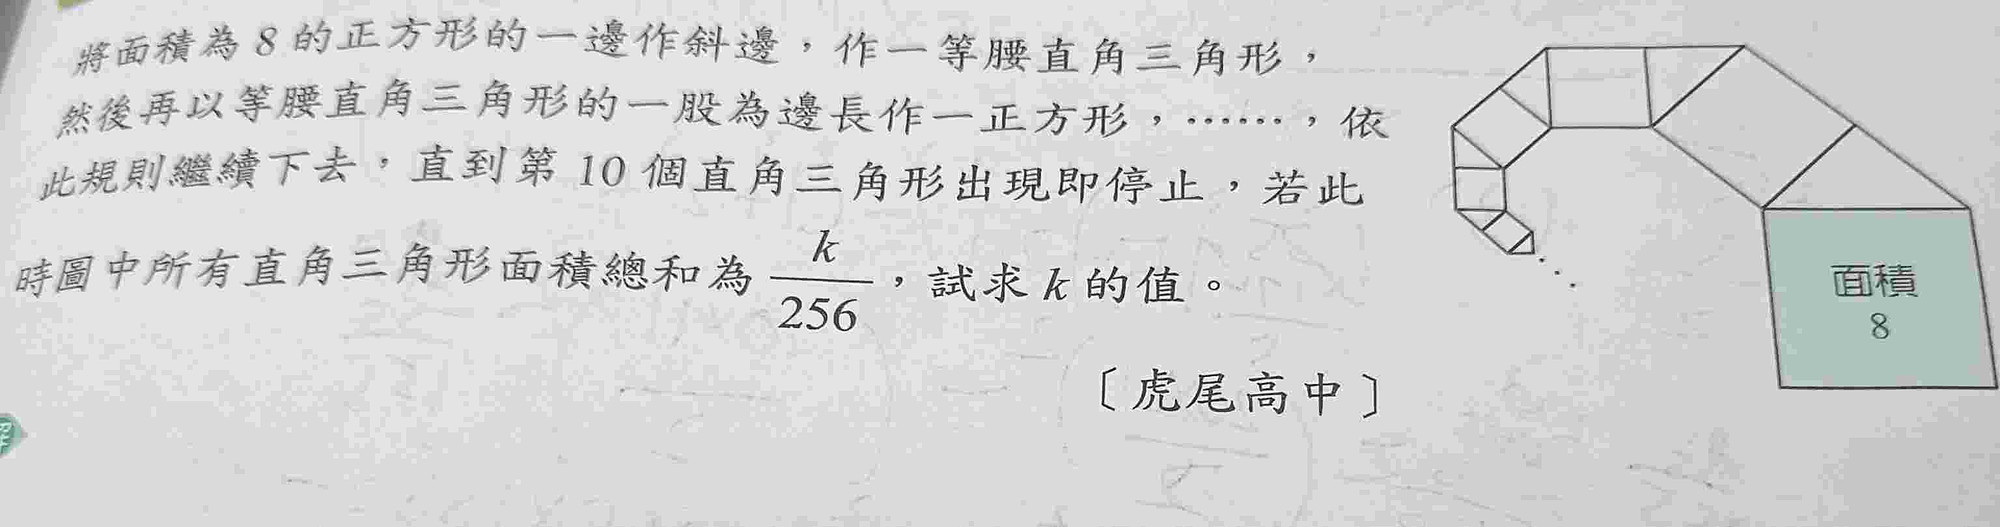 將面積為 8 的正方形的一邊作斜邊，作一等腰直角三角形，
然後再以等腰直角三角形的一股為邊長作一正方形，……，依
此規則繼續下去，直到第 10 個直角三角形出現即停止，若此
時圖中所有直角三角形面積總和為 k/256，試求 k 的值。
〔虎尾高中〕
面積
8